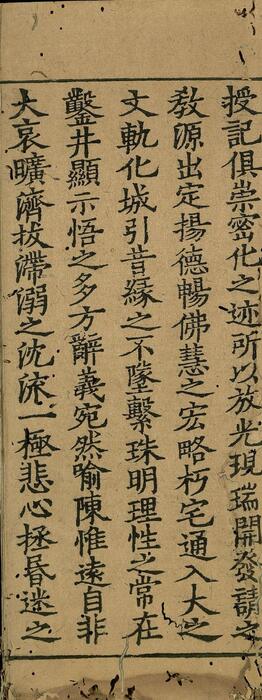 授記俱崇密化之迹所以放光現瑞開發請之
教源出定揚德暢佛慧之宏略朽宅通入大之
文軌化城引昔緣之不墜繫珠明理性之常在
鑿井顯示悟之多方辭義宛然喻陳惟遠自非
大哀曠濟拔滯溺之沈流一極悲心拯昏迷之